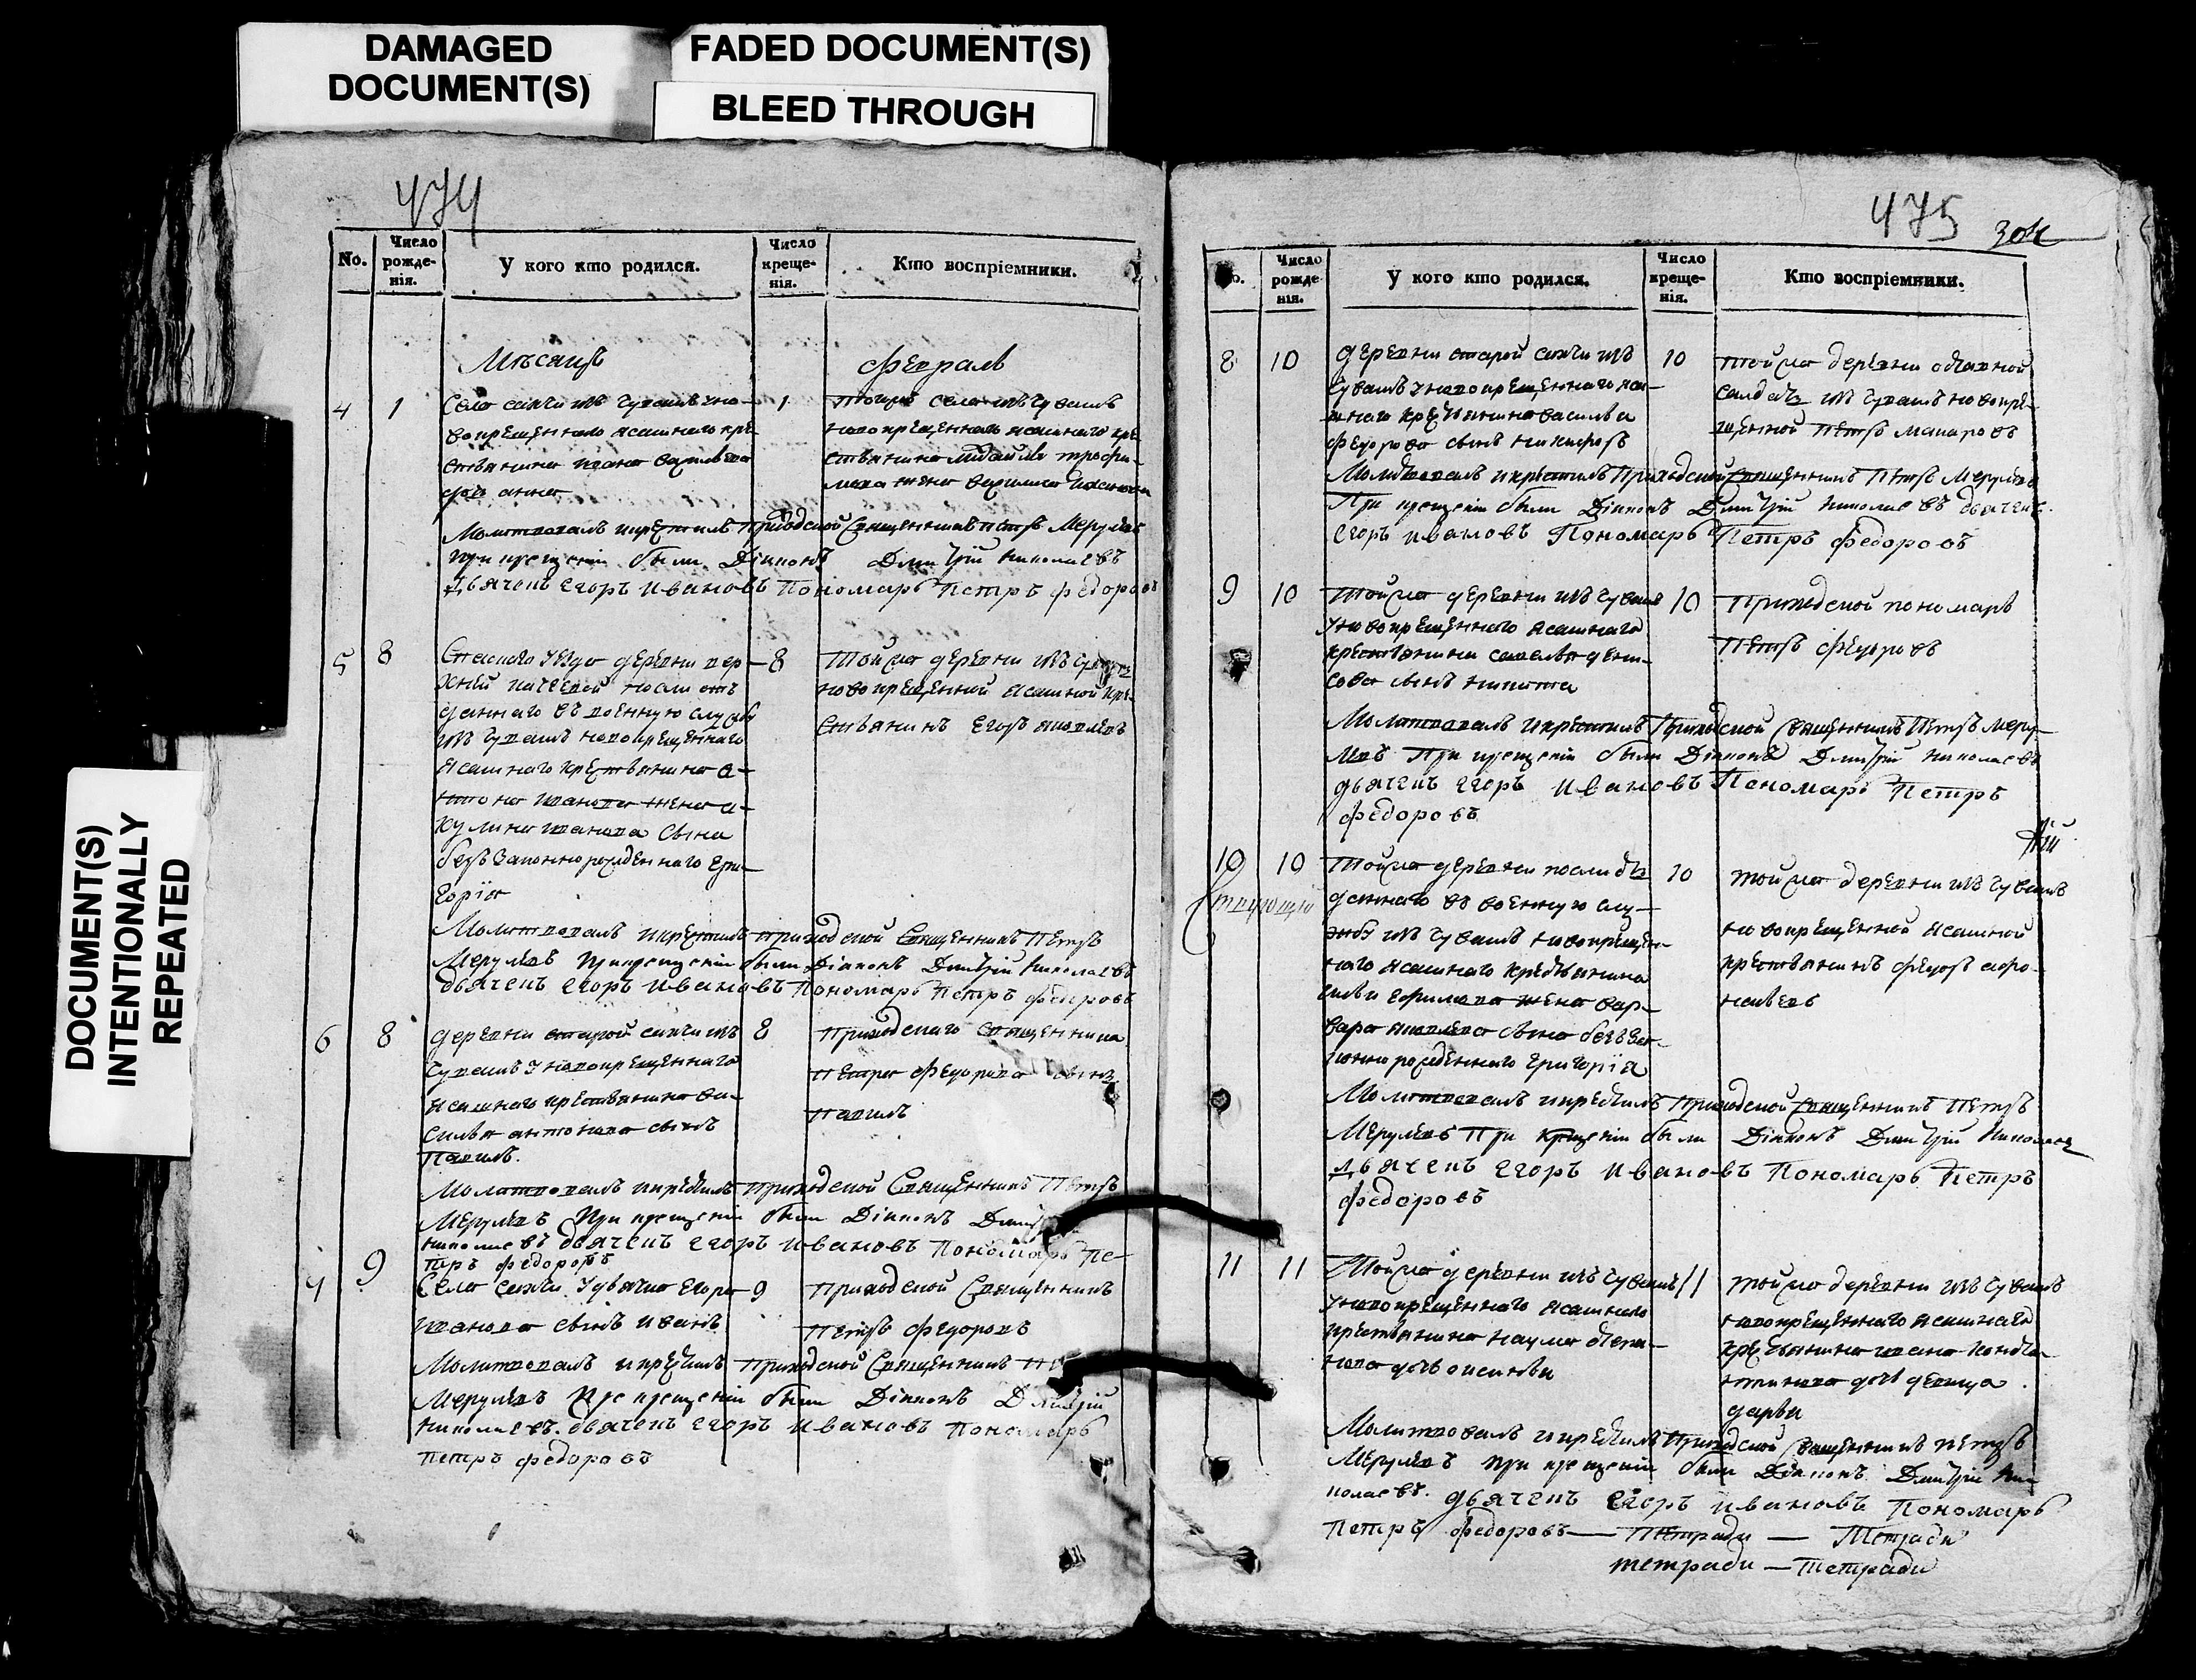 DAMAGED
DOCUMENT(S)
FADED DOCUMENT(S)
BLEED THROUGH
DOCUMENT(S)
INTENTIONALLY
REPEATED
474
No.
Число рожде-нія.
У кого кто родился.
Число креще-нія.
Кто воспріемники.
Мѣсяцъ
февраль
4
1
Село сенчи изъ чувашъ у но-
вокрещеннаго ясашнаго кре-
стьянина ивана васильева
дочь анна
1
тогожъ села изъ чувашъ
новокрещеннаго ясашнаго кре-
стьянина трофи-
мова жена
Молитвовалъ и крестилъ приходской Священникъ петръ Мерулевъ
при крещеніи были Діяконъ Дмитрій николаевъ
Дьячекъ Егоръ Ивановъ Пономарь Петръ федоровъ
5
8
Спаскаго уезда деревни вер-
хней
даннаго въ военную службу
изъ чувашъ новокрещеннаго
ясашнаго крестьянина а-
нтона иванова жена а-
кулина иванова сына
безъ законнорожденнаго Гри-
горія
8
Той же деревни изъ чувашъ
новокрещенной ясашной кре-
стьянинъ Егоръ яковлевъ
Молитвовалъ и крестилъ приходской Священникъ Петръ
Мерулевъ при крещеніи были Діяконъ Дмитрій Николаевъ
дьячекъ Егоръ Ивановъ Пономарь Петръ федоровъ
6
8
деревни старой сенчи изъ
чувашъ у новокрещеннаго
ясашнаго крестьянина ва-
силья антонова сынъ
Павилъ.
8
приходскаго Священника
Петра Федорова сынъ
Павилъ
Молитвовалъ и крестилъ приходской Священникъ Петръ
Мерулевъ При крещеніи были Діяконъ
николаевъ дьячекъ Егоръ Ивановъ Пономарь Пе-
тръ федоровъ
7
9
Села сенчи у дьячка Егора
иванова сынъ иванъ
9
Приходской Священникъ
Петръ Федоровъ
Молитвовалъ и крестилъ приходской Священникъ
Мерулевъ При крещеніи были Діяконъ Дмитрій
николаевъ дьячекъ Егоръ Ивановъ Пономарь
Петръ федоровъ
475
304
No.
Число рожде-нія.
У кого кто родился.
Число креще-нія.
Кто воспріемники.
8
10
деревни старой сенчи изъ
чувашъ у новокрещеннаго яса-
шнаго крестьянина василья
федорова сынъ никифоръ
10
той же деревни отставной
салдатъ изъ чувашъ новокре-
щенной петръ макаровъ
Молитвовалъ и крестилъ Приходской Священникъ Петръ Мерулевъ
При крещеніи были Діяконъ Дмитрій николаевъ дьячекъ
Егоръ Ивановъ Пономарь Петръ федоровъ
9
10
Той же деревни изъ чувашъ
у новокрещеннаго ясашнаго
крестьянина савелья дени-
сова сынъ никита
10
Приходской пономарь
Петръ Федоровъ
Молитвовалъ и крестилъ Приходской Священникъ Петръ Меру-
левъ При крещеніи были Діяконъ Дмитрій николаевъ
дьячекъ Егоръ Ивановъ Пономарь Петръ
федоровъ
10
10
Той же деревни после от-
даннаго въ военную слу-
жбу изъ чувашъ новокрещен-
наго ясашнаго крестьянина
ефимова жена вар-
вара яковлева сына безъ за-
коннорожденнаго Григорія
10
той же деревни изъ чувашъ
новокрещенной ясашной
крестьянинъ федоръ афо-
насьевъ
Молитвовалъ и крестилъ Приходской Священникъ Петръ
Мерулевъ При крещеніи были Діяконъ Дмитрій Николаев
Дьячекъ Егоръ Ивановъ Пономарь Петръ
федоровъ
11
11
Той же деревни изъ чувашъ
у новокрещеннаго ясашнаго
крестьянина наума степа-
нова дочь
11
той же деревни изъ чувашъ
новокрещеннаго ясашнаго
крестьянина ивана конста-
нтинова дочь девица
дарья
Молитвовалъ и крестилъ Приходской Священникъ петръ
Мерулевъ при крещеніи были Діяконъ Дмитрій Ни-
колаевъ. дьячекъ Егоръ Ивановъ Пономарь
Петръ федоровъ — Петради — Тетради
тетради — Тетради